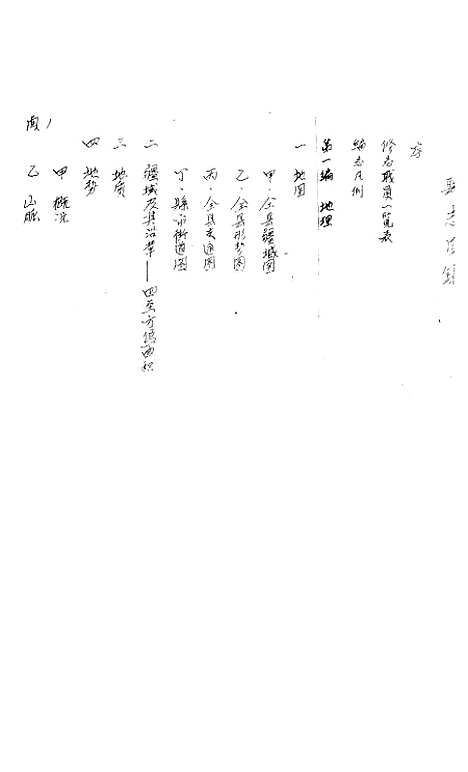 县志目錄
序
修志职員一覧表
編志凡例
第一編 地理
一 地图
甲·全县疆域图
乙·全县形势图
丙·全县交通图
丁·縣城街道图
二 疆域及其沿革——四至方位面积
三 地质
四 地势
甲 概况
乙 山脉